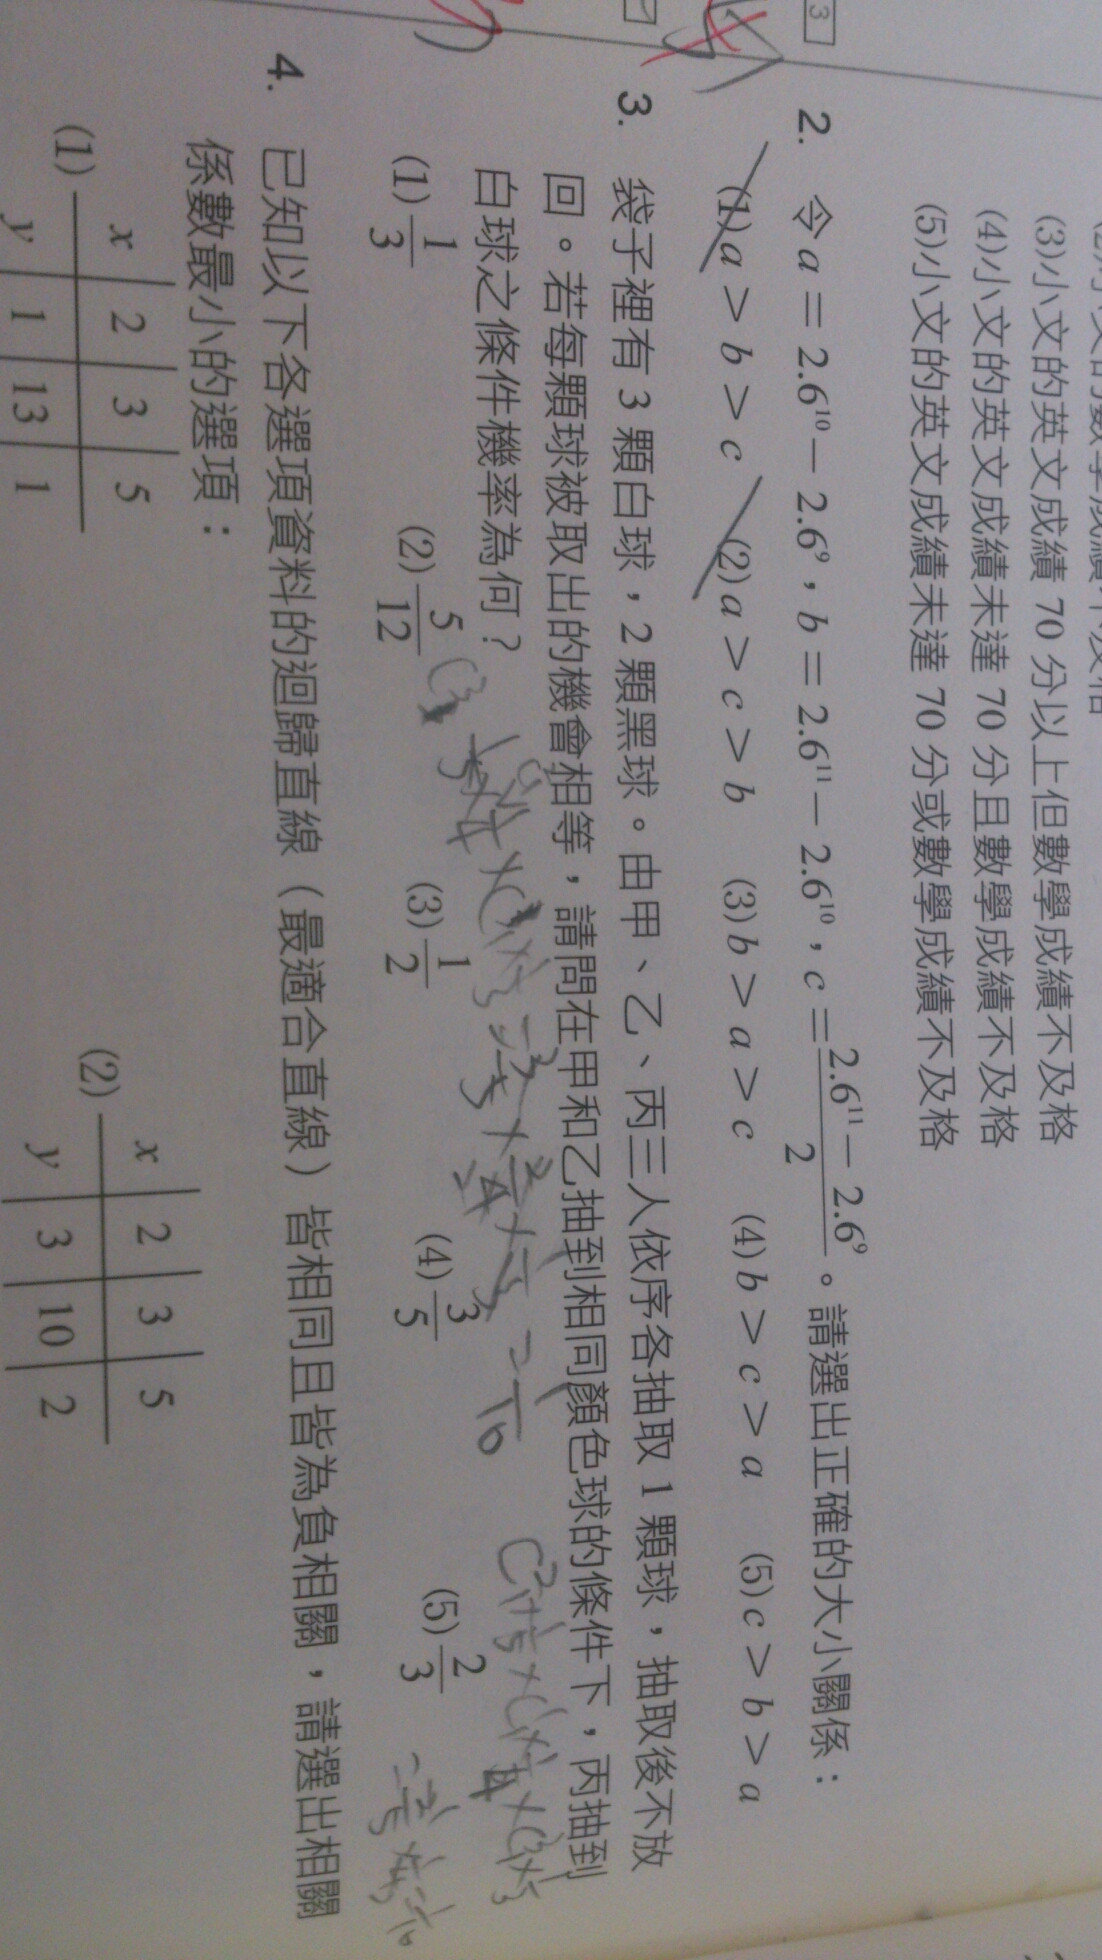 3
(3)小文的英文成績 70 分以上但數學成績不及格
(4)小文的英文成績未達 70 分且數學成績不及格
(5)小文的英文成績未達 70 分或數學成績不及格
2. 令 a = 2.6¹⁰ − 2.6⁹,b = 2.6¹¹ − 2.6¹⁰,c = (2.6¹¹ − 2.6⁹)/2。請選出正確的大小關係:
(1) a > b > c (2) a > c > b (3) b > a > c (4) b > c > a (5) c > b > a
3. 袋子裡有 3 顆白球,2 顆黑球。由甲、乙、丙三人依序各抽取 1 顆球,抽取後不放
回。若每顆球被取出的機會相等,請問在甲和乙抽到相同顏色球的條件下,丙抽到
白球之條件機率為何?
(1) 1/3 (2) 5/12 (3) 1/2 (4) 3/5 (5) 2/3
4. 已知以下各選項資料的迴歸直線(最適合直線)皆相同且皆為負相關,請選出相關
係數最小的選項:
(1) x 2 3 5 (2) x 2 3 5
y 1 13 1 y 3 10 2